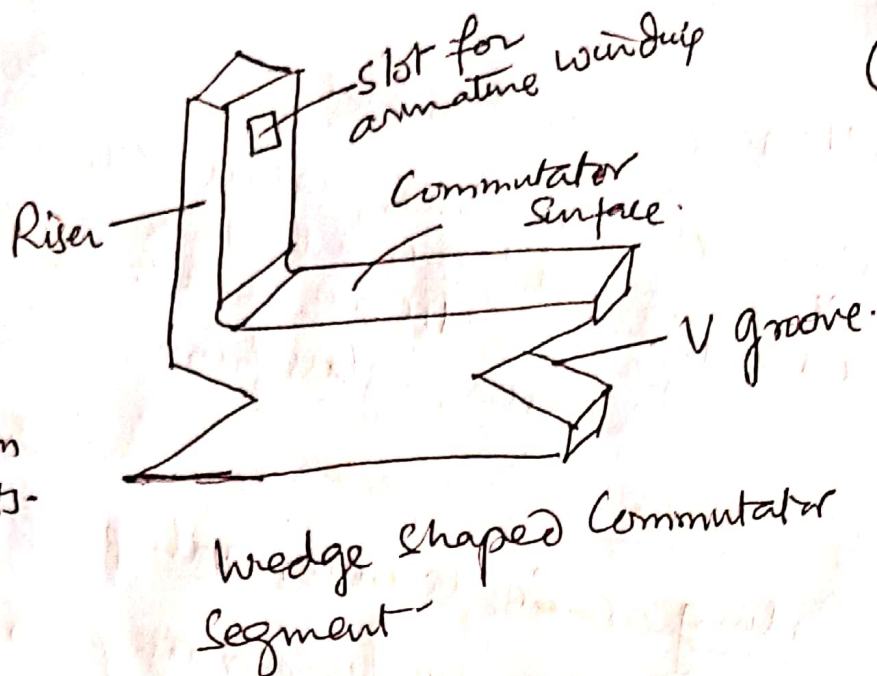 Slot for
armature winding
Commutator
Surface.
Riser
V groove.
Wedge shaped Commutator
Segment